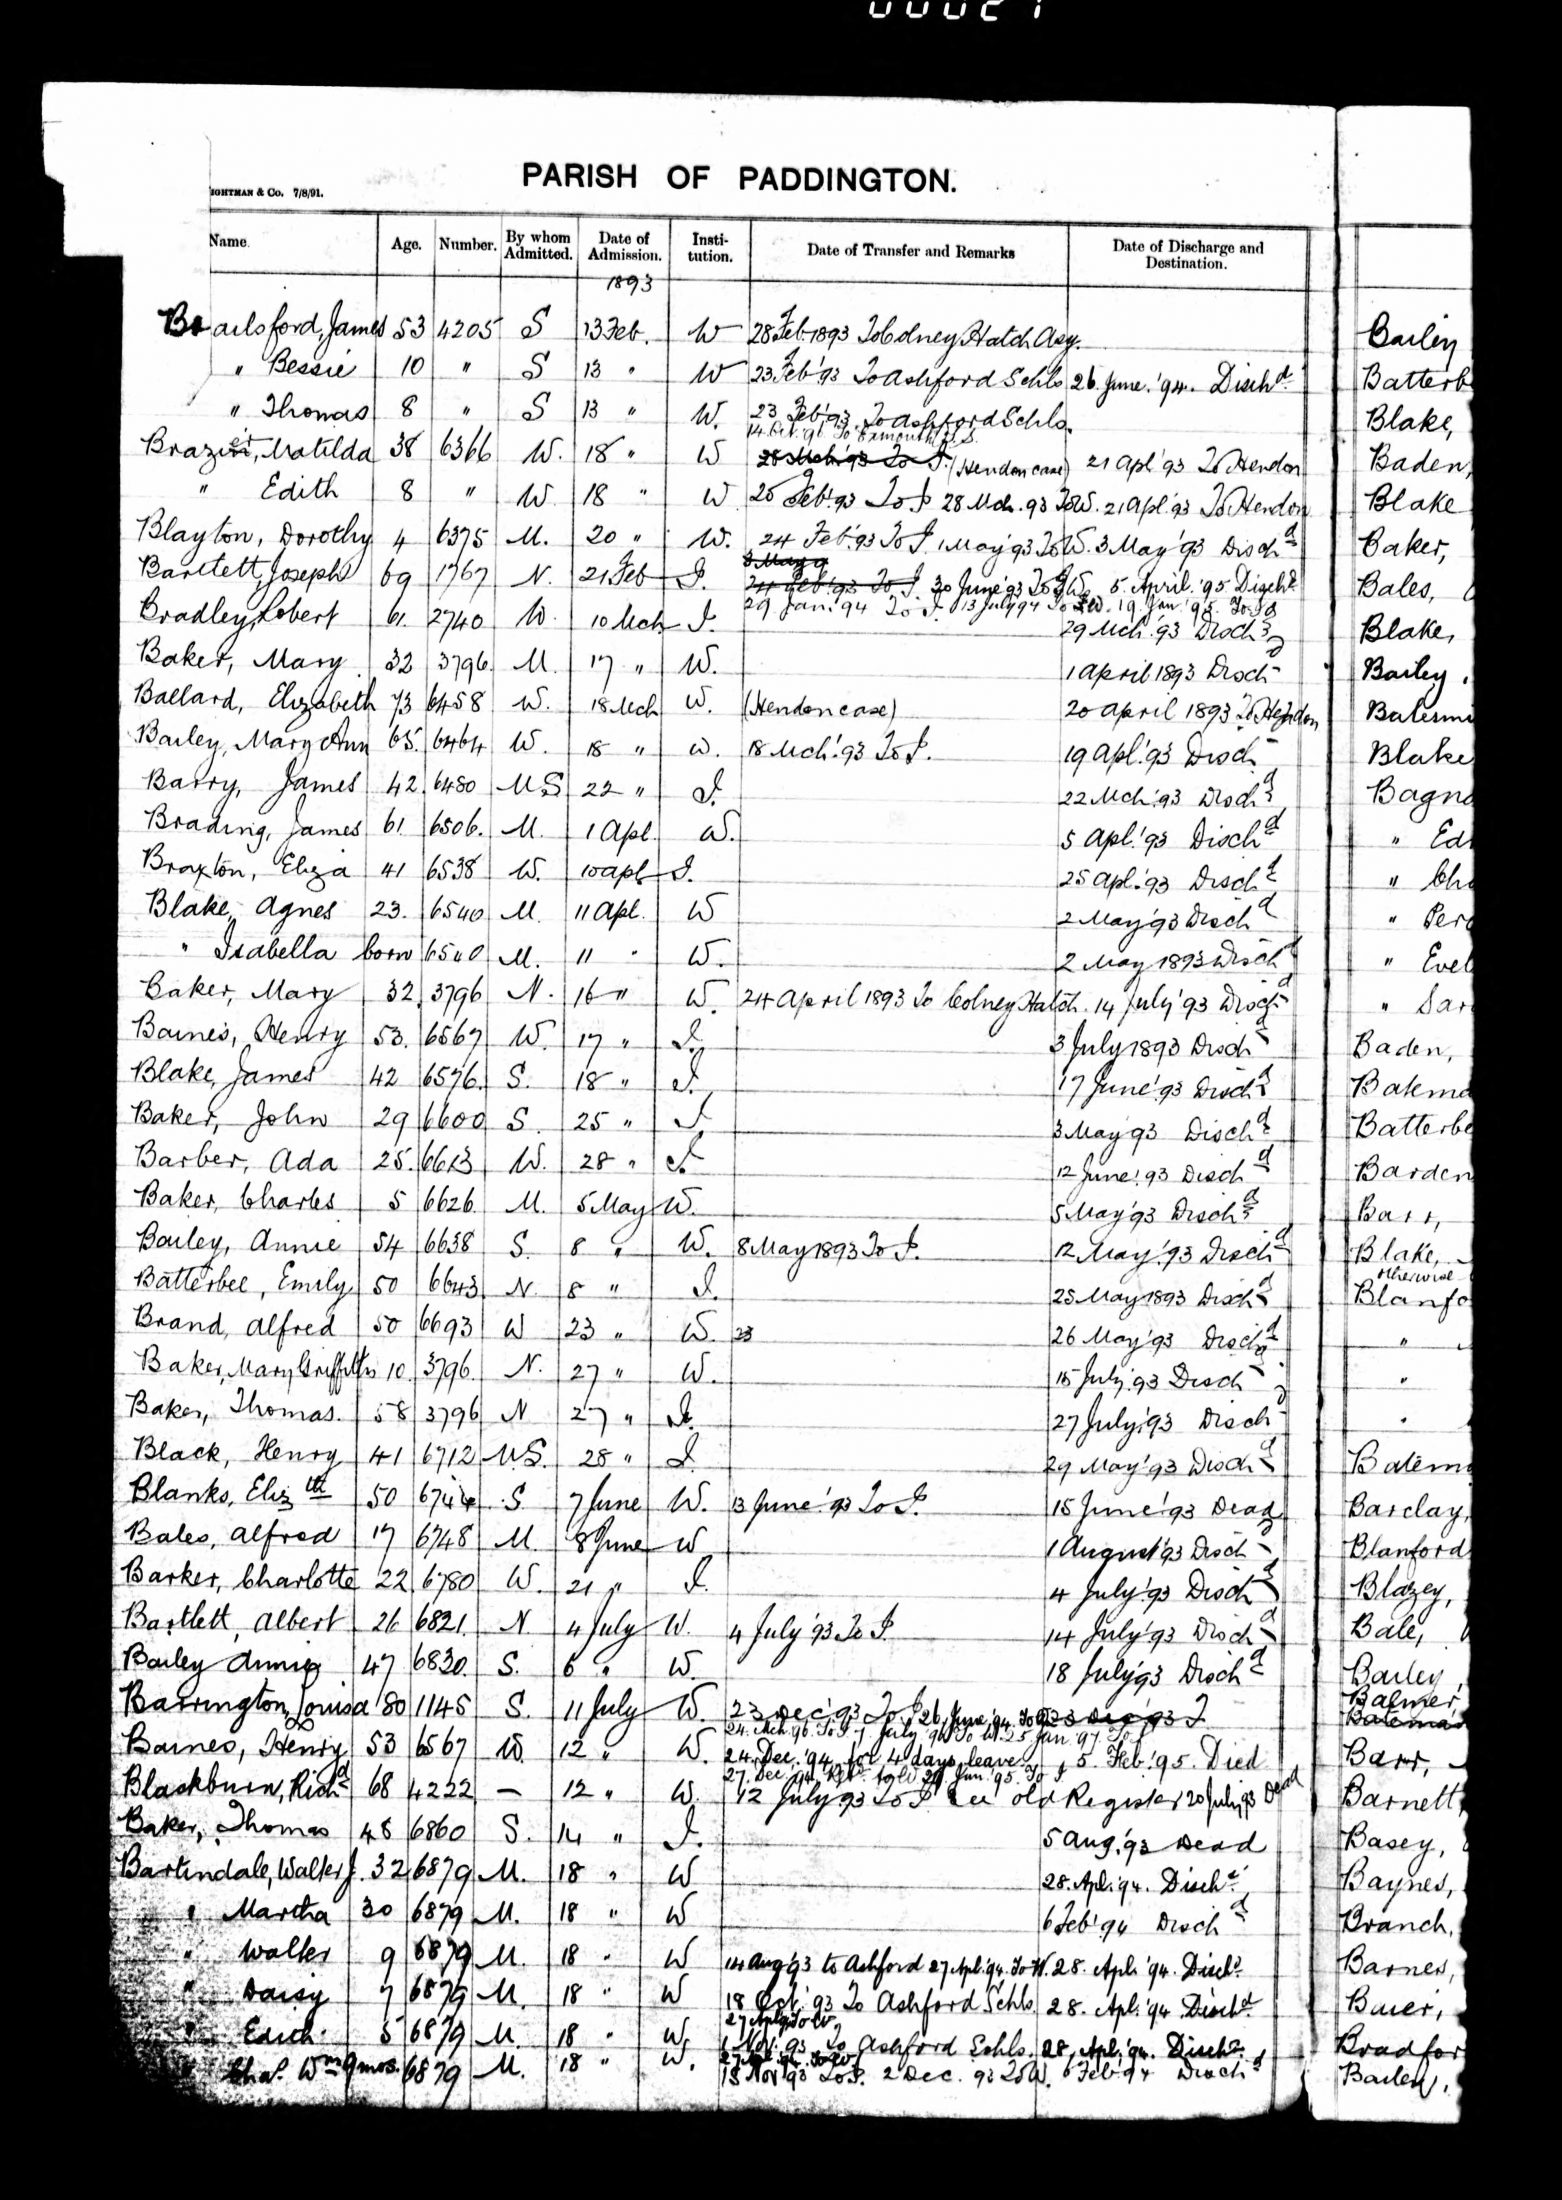 00021
PARISH OF PADDINGTON.
IGHTMAN & Co. 7/8/91.
Name. Age. Number. By whom Admitted. Date of Admission. Insti-tution. Date of Transfer and Remarks Date of Discharge and Destination.
1893
Brailsford, James 53 4205 S 13 Feb. W 28 Feb. 1893 To Colney Hatch Asy.
" Bessie 10 " S 13 " W 23 Feb '93 To Ashford Schls 26. June. '94. Dischd
" Thomas 8 " S 13 " W. 23 Feb '93. To Ashford Schls.
14. Oct. 96 To Exmouth T.S.
Brazier, Matilda 38 6366 W. 18 " W 28 Mch. '93 To I. (Hendon case) 21 Apl '93 To Hendon
" Edith 8 " W 18 " W 25 Feb '93 To I 28 Mch. 93 To W. 21 Apl. '93 To Hendon
Blayton, Dorothy 4 6375 M. 20 " W. 24 Feb. '93 To I. 1 May '93 To W. 3 May '93 Dischd
3 May 9
Bartlett, Joseph 69 1767 N. 21 Feb I. 24 Feb '93 To I. 30 June '93 To W. 5. April. '95. Dischd
29 Jan. '94 To I. 13 July 94 To W. 19 Jan. '95. To I
Bradley, Robert 61. 2740 W. 10 Mch I. 29 Mch. '93 Dischd
Baker, Mary 32 3796. M. 17 " W. 1 April 1893 Dischd
Ballard, Elizabeth 73 6458 W. 18 Mch W. (Hendon case) 20 April 1893 To Hendon
Bailey, Mary Ann 65. 6464 W. 18 " W. 18 Mch. '93 To I. 19 Apl. '93 Dischd
Barry, James 42. 6480 M.S 22 " I. 22 Mch. '93 Dischd
Brading, James 61 6506. M. 1 Apl. W. 5 Apl. '93 Dischd
Braxton, Eliza 41 6538 W. 10 Apl I. 25 Apl. '93 Dischd
Blake, Agnes 23. 6540 M. 11 Apl. W 2 May '93 Dischd
" Isabella born 6540 M. 11 " W. 2 May 1893 Dischd
Baker, Mary 32. 3796 N. 16 " W. 24 April 1893 To Colney Hatch. 14 July '93 Dischd
Baines, Henry 53. 6567 W. 17 " I. 3 July 1893 Dischd
Blake, James 42 6576. S. 18 " I. 17 June '93 Dischd
Baker, John 29 6600 S. 25 " I 3 May '93 Dischd
Barber, Ada 25. 6613 W. 28 " I 12 June '93 Dischd
Baker, Charles 5 6626. M. 5 May W. 5 May '93 Dischd
Bailey, Annie 54 6638 S. 8 " W. 8 May 1893 To I. 12 May '93 Dischd
Batterbee, Emily 50 6643 N. 8 " I. 25 May 1893 Dischd
Brand, Alfred 50 6693 W 23 " W. 23 26 May '93 Dischd
Baker, Mary Griffiths 10. 3796. N. 27 " W. 15 July. 93 Dischd
Baker, Thomas. 58 3796 N 27 " I. 27 July '93 Dischd
Black, Henry 41 6712 M.S. 28 " I. 29 May '93 Dischd
Blanks, Elizth 50 6744 S. 7 June W. 13 June '93 To I. 15 June '93 Dead
Bales, Alfred 17 6748 M. 8 June W 1 August '93 Dischd
Barker, Charlotte 22 6780 W. 21 " I. 4 July '93 Dischd
Bartlett, Albert 26 6821. N 4 July W. 4 July '93 To I. 14 July '93 Dischd
Bailey Annie 47 6830. S. 6 " W. 18 July '93 Dischd
Barrington, Louisa 80 1145 S. 11 July W. 23 Dec. '93 To I 26 June '94 To W 23 Dec 93 I
24. Mch. 96. To I. 1 July '96 To W. 25 Jan '97. To I
Baines, Henry 53 6567 W. 12 " W. 24. Dec. '94. for 4 days leave 5. Feb. '95. Died
27. Dec. '94. Retd. to W 29. Jan. '95. To I.
Blackburn, Richd 68 4222 — 12 " W. 12 July 93 To I. See old Register 20 July 93 Dead
Baker, Thomas 48 6860 S. 14 " I. 5 Aug. '93 Dead
Bartindale, Walter J. 32 6879 M. 18 " W 28. Apl. '94. Dischd
" Martha 30 6879 M. 18 " W 6 Feb '94 Dischd
" Walter 9 6879 M. 18 " W 14 Aug '93 to Ashford 27 Apl. '94. To W. 28. Apl. '94. Dischd
" Daisy 7 6879 M. 18 " W 18 Oct. '93 To Ashford Schls. 28. Apl. '94 Dischd
27 Apl 94 To W
" Edith 5 6879 M. 18 " W. 1 Nov. 93 To Ashford Schls. 28. Apl. '94. Dischd
27 Apl. 94. To W.
" Chas. Wm 9 mos. 6879 M. 18 " W. 15 Nov 93 To I. 2 Dec. 93 To W. 6 Feb '94 Dischd
Bailey
Batterb
Blake,
Baden,
Blake
Baker,
Bales,
Blake,
Bailey
Blake
Bagna
" Ed
" Cha
" Perc
" Evel
" Sar
Baden,
Batema
Batterbe
Barden
Barr,
Blake,
otherwise
Blanfo
"
"
"
Batem
Barclay,
Blanford
Blazey,
Bale,
Bailey,
Balmer,
Bateman
Barr,
Barnett,
Basey,
Baynes,
Branch,
Barnes,
Bradfor
Bailey,